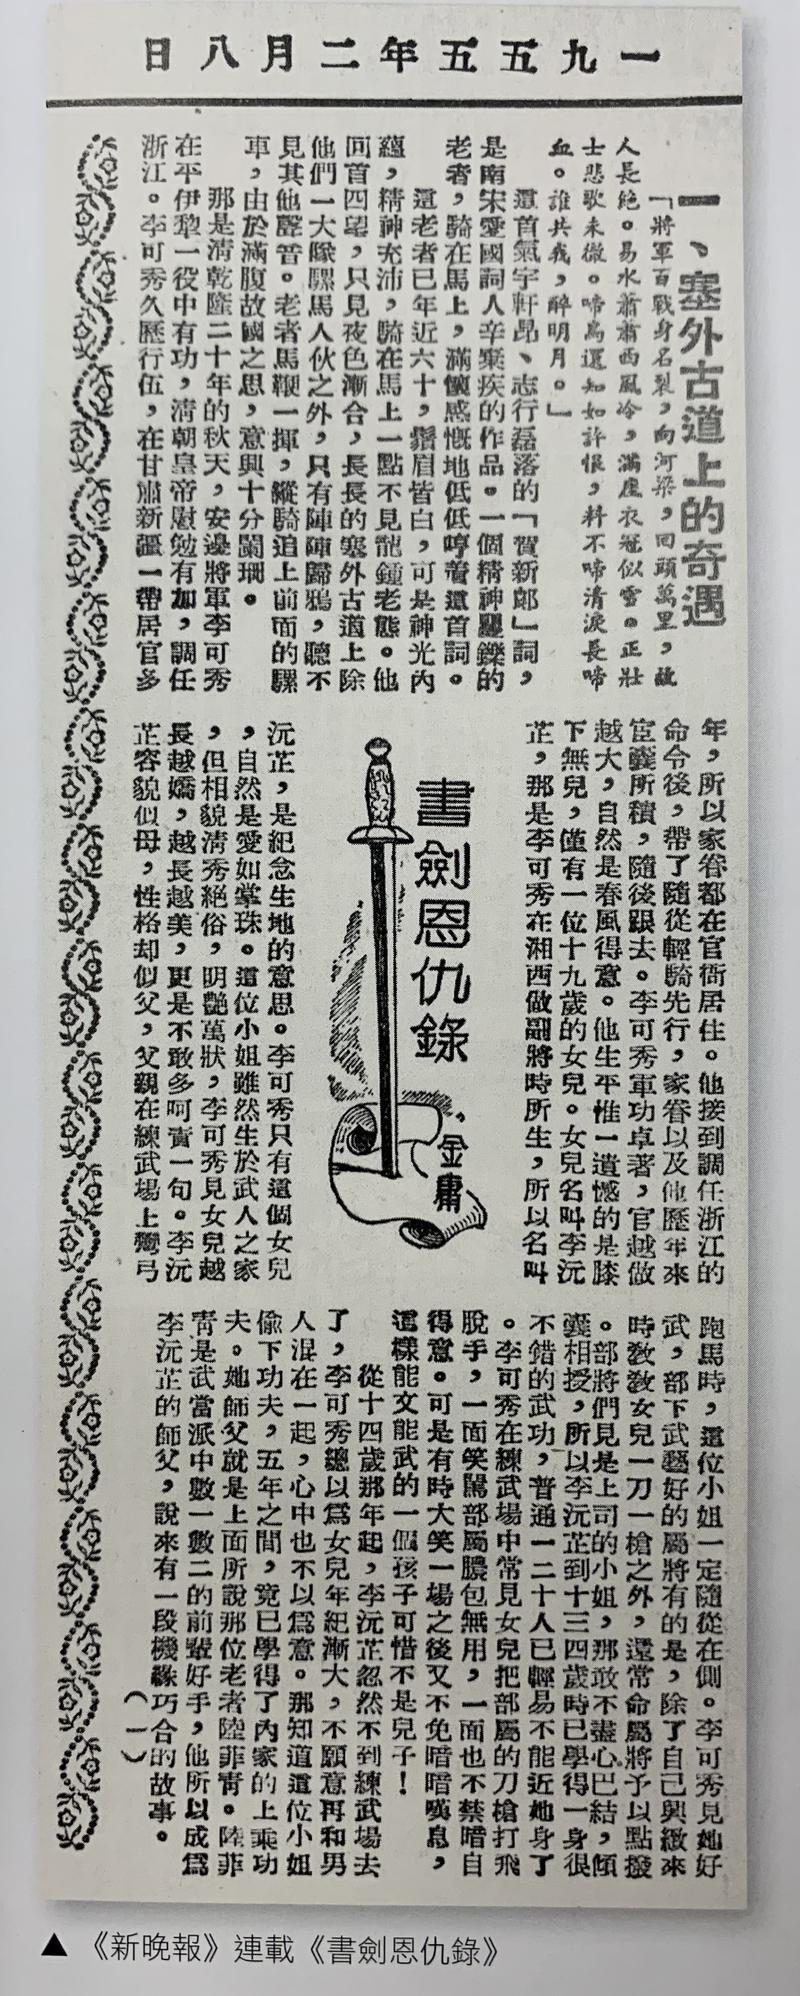 一九五五年二月八日
一、塞外古道上的奇遇
「將軍百戰身名裂，向河梁，回頭萬里，故
人長絕。易水蕭蕭西風冷，滿座衣冠似雪。正壯
士悲歌未徹。啼鳥還知如許恨，料不啼清淚長啼
血。誰共我，醉明月。」
這首氣宇軒昂、志行磊落的「賀新郎」詞，
是南宋愛國詞人辛棄疾的作品。一個精神矍鑠的
老者，騎在馬上，滿懷感慨地低低哼着這首詞。
這老者已年近六十，鬚眉皆白，可是神光內
蘊，精神充沛，騎在馬上一點不見龍鍾老態。他
回首四望，只見夜色漸合，長長的塞外古道上除
他們一大隊騾馬人伙之外，只有陣陣歸鴉，聽不
見其他聲音。老者馬鞭一揮，縱騎追上前面的騾
車，由於滿腹故國之思，意興十分闌珊。
那是清乾隆二十年的秋天，安邊將軍李可秀
在平伊犁一役中有功，清朝皇帝慰勉有加，調任
浙江。李可秀久歷行伍，在甘肅新疆一帶居官多
年，所以家眷都在官衙居住。他接到調任浙江的
命令後，帶了隨從輕騎先行，家眷以及他歷年來
宦囊所積，隨後跟去。李可秀軍功卓著，官越做
越大，自然是春風得意。他生平惟一遺憾的是膝
下無兒，僅有一位十九歲的女兒。女兒名叫李沅
芷，那是李可秀在湘西做副將時所生，所以名叫
書劍恩仇錄
金庸
沅芷，是紀念生地的意思。李可秀只有這個女兒
，自然是愛如掌珠。這位小姐雖然生於武人之家
，但相貌清秀絕俗，明艷萬狀，李可秀見女兒越
長越嬌，越長越美，更是不敢多呵責一句。李沅
芷容貌似母，性格却似父，父親在練武場上彎弓
跑馬時，這位小姐一定隨從在側。李可秀見她好
武，部下武藝好的屬將有的是，除了自己興緻來
時敎敎女兒一刀一槍之外，還常命屬將予以點撥
。部將們見是上司的小姐，那敢不盡心巴結，傾
囊相授，所以李沅芷到十三四歲時已學得一身很
不錯的武功，普通一二十人已輕易不能近她身了
。李可秀在練武場中常見女兒把部屬的刀槍打飛
脫手，一面笑鬧部屬膿包無用，一面也不禁暗自
得意。可是有時大笑一場之後又不免暗暗嘆息，
這樣能文能武的一個孩子可惜不是兒子！
從十四歲那年起，李沅芷忽然不到練武場去
了，李可秀總以爲女兒年紀漸大，不願意再和男
人混在一起，心中也不以爲意。那知道這位小姐
偷下功夫，五年之間，竟已學得了內家的上乘功
夫。她師父就是上面所說那位老者陸菲靑。陸菲
靑是武當派中數一數二的前輩好手，他所以成爲
李沅芷的師父，說來有一段機緣巧合的故事。
（一）
▲《新晚報》連載《書劍恩仇錄》